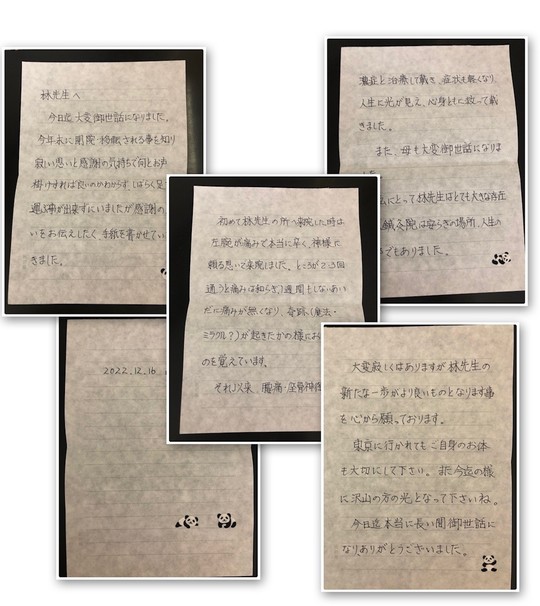 林先生へ
今日迄大変御世話になりました。
今年末に閉院・移転される事を知り
寂しい思いと感謝の気持ちで何とお声
掛けすれば良いのかわからず、しばらく足
運ぶ事が出来ずにいましたが感謝の
いをお伝えしたく、手紙を書かせてい
きました。
初めて林先生の所へ来院した時は
圧腕が痛みで本当に辛く、神様に
頼る思いで来院しました。ところが2〜3回
通うと痛みは和らぎ、1週間としないあい
だに痛みが無くなり、奇跡(魔法・
ミラクル?)が起きたかの様に
のを覚えています。
それ以来、腰痛・座骨神経
と治療して戴き、症状も軽くなり
人生に光が見え、心身ともに救って戴
きました。
また、母も大変御世話になりま
にとって林先生はとても大きな存在
鍼灸院は安らぎの場所、人生の
でもありました。
大変寂しくはありますが林先生の
新たな一歩がより良いものとなります事
を心から願っております。
東京に行かれてもご自身のお体
も大切にして下さい。また今迄の様
に沢山の方の光となって下さいね。
今日迄本当に長い間御世話に
なりありがとうございました。
2022.12.16